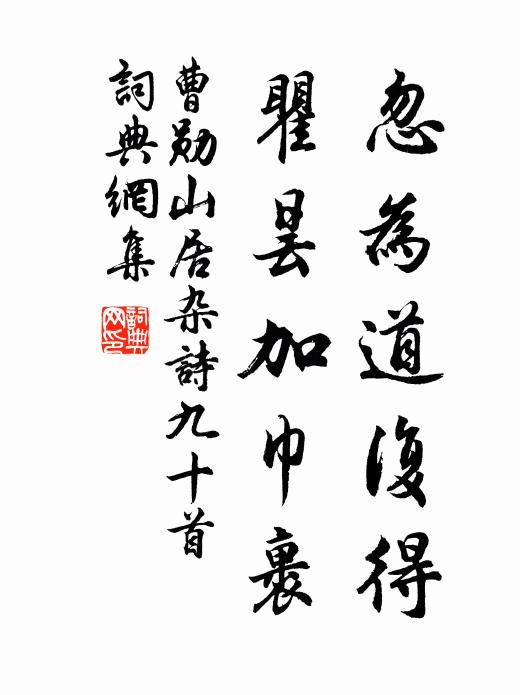 忽為道復得
瞿曇加巾裹
曹勛山居杂詩九十首
詞典網集
詞典
网印